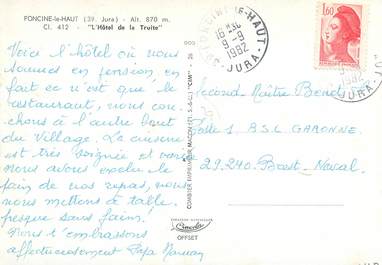 FONCINE-le-HAUT (39. Jura) - Alt. 870 m.
Cl. 412 - "L'Hôtel de la Truite"
Voici l'hôtel où nous
sommes en pension, en
fait ce n'est que le
restaurant, nous cou-
chons à l'autre bout
du Village. La cuisine
est très soignée et variée
nous avons voulu le
pain de nos repas, nous
nous mettons à table
presque sans faim!
Nous t'embrassons
affectueusement Papa Maman
COMBIER IMPRIMEUR MACON (71. S.-&-L.) "CIM"
CIM
OFFSET
39 FONCINE-LE-HAUT
16 H30
9-9
1982
JURA
1,60
Second Maître
Poste 1 B.S.L GARONNE
29.240 Brest. Naval